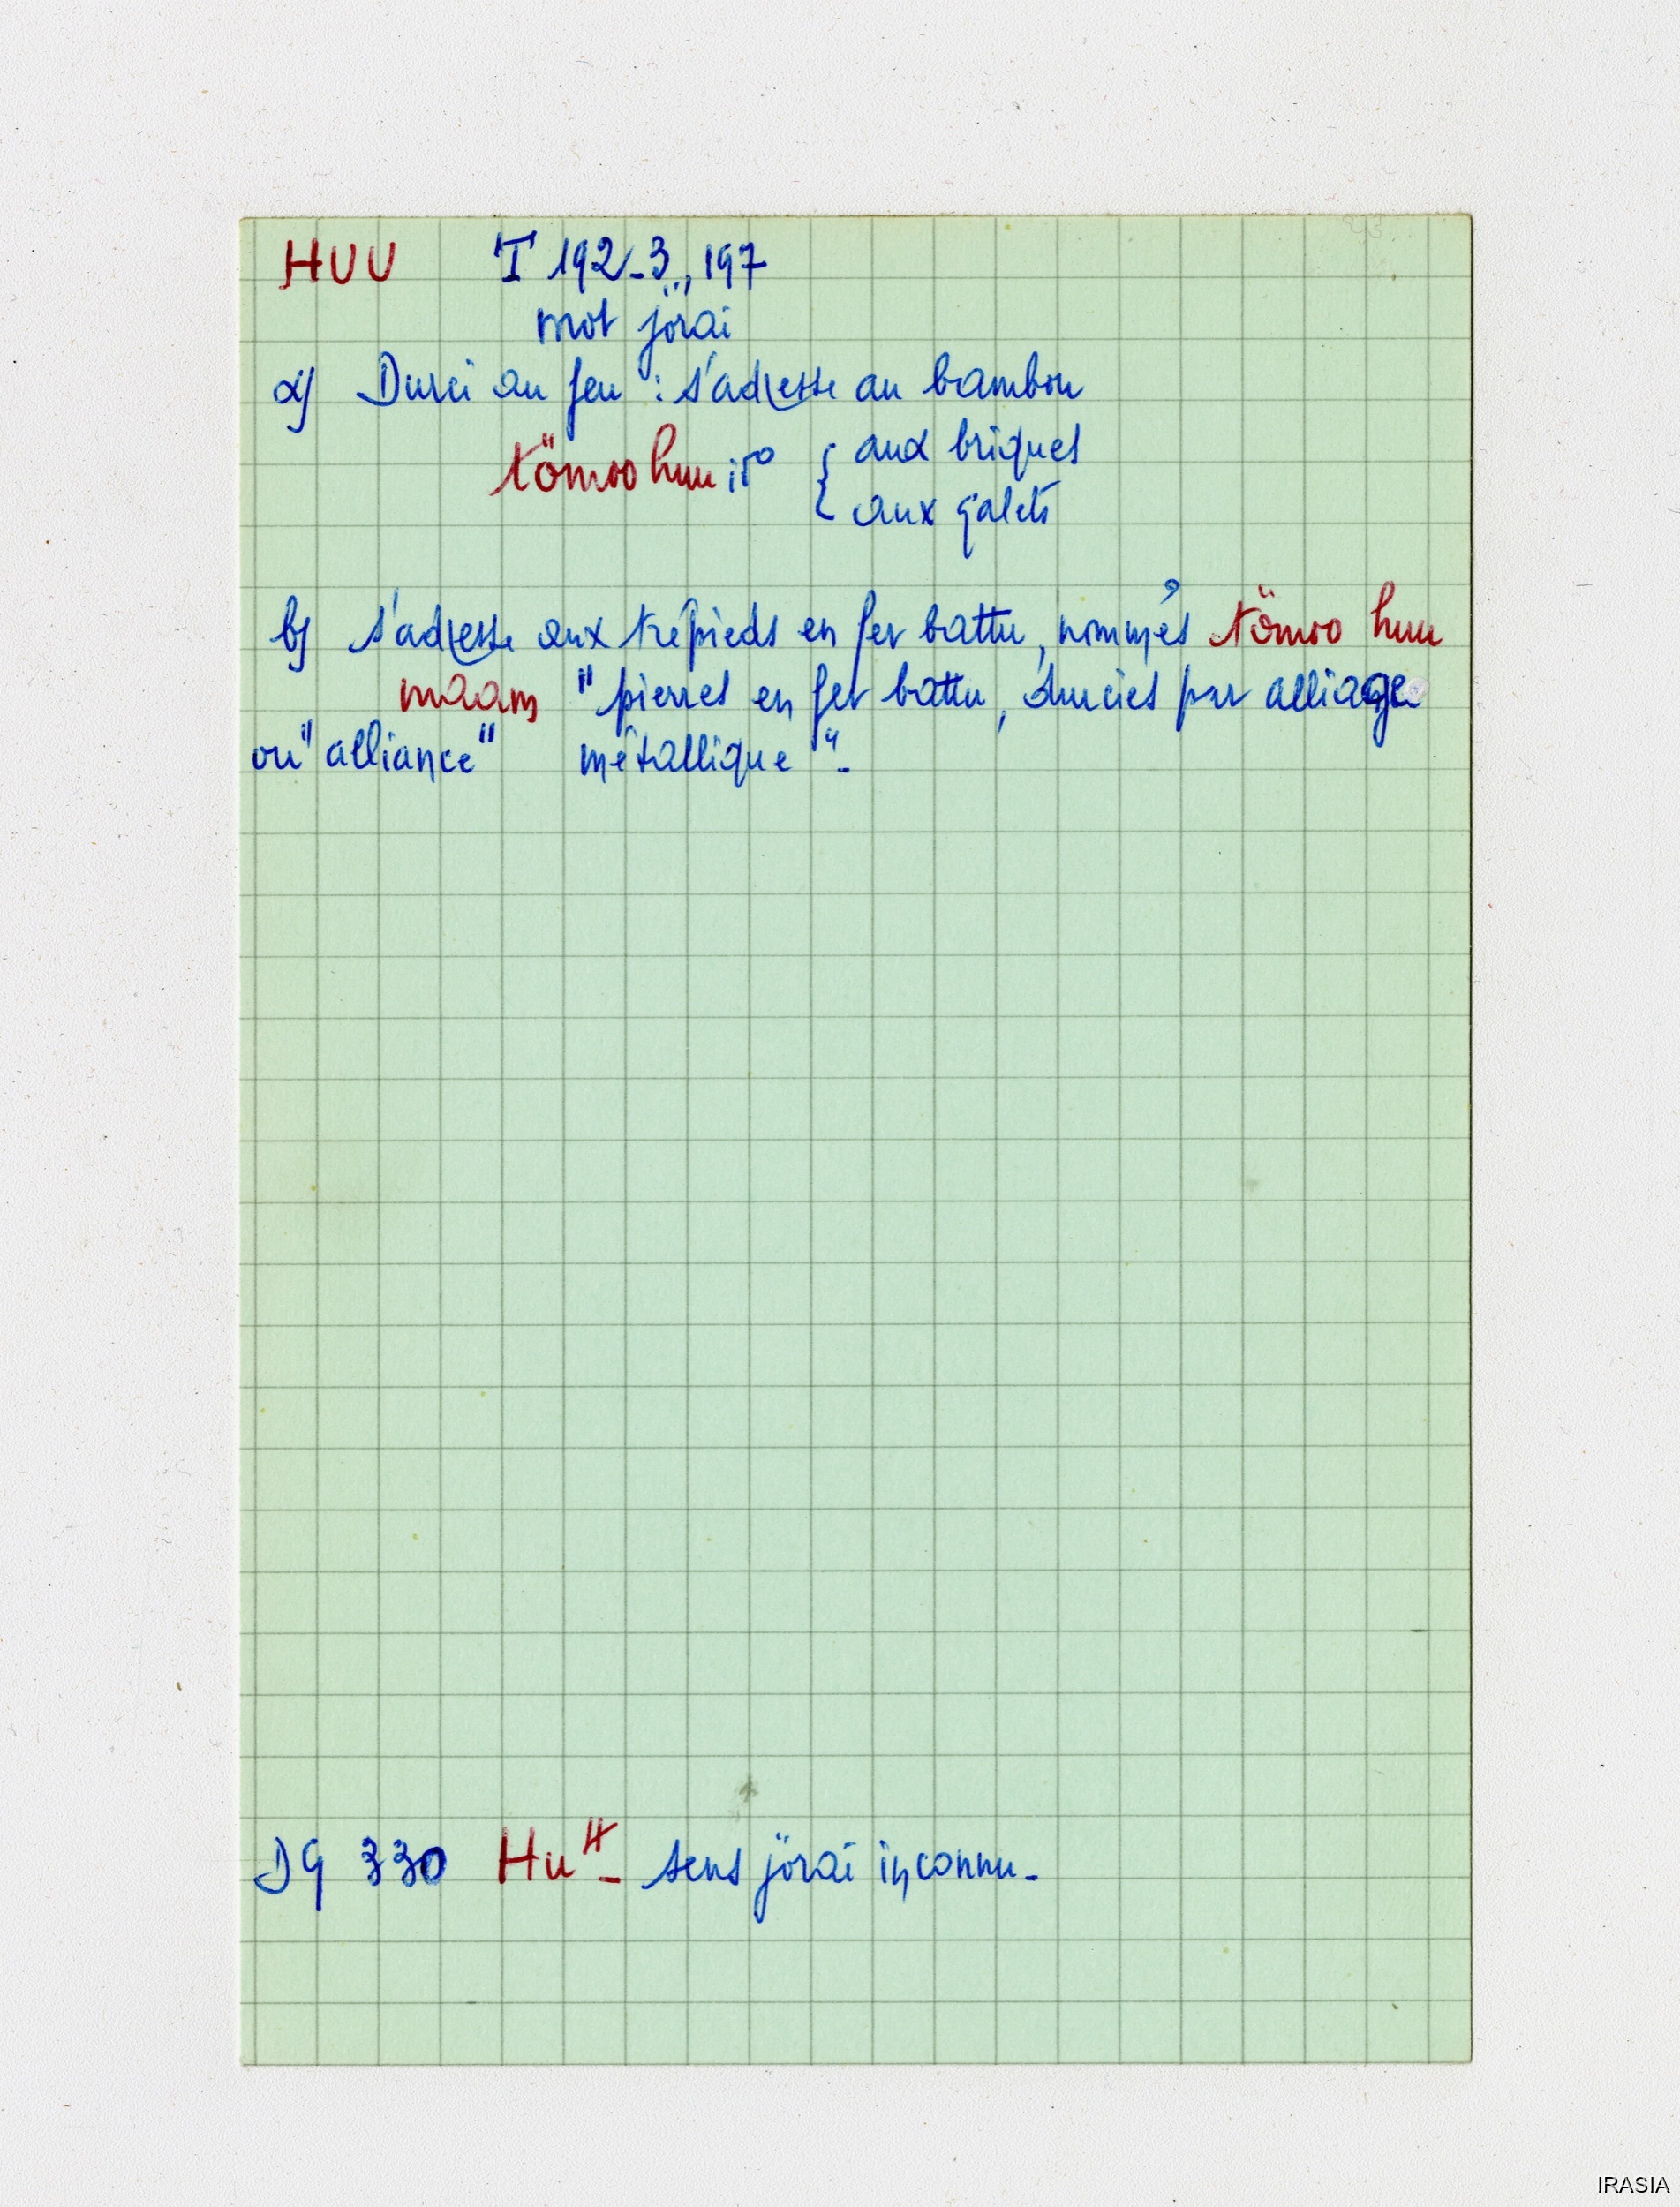 HUU T 192-3, 197
mot jörai
a) Durci au feu : s'adresse au bambou
tömoo huu id° { aux briques
aux galets
b) s'adresse aux trépieds en fer battu, nommés tömoo huu
maam "pierres en fer battu, durcies par alliage
ou "alliance" métallique".
DG 330 Hu" - sens jörai inconnu -
IRASIA